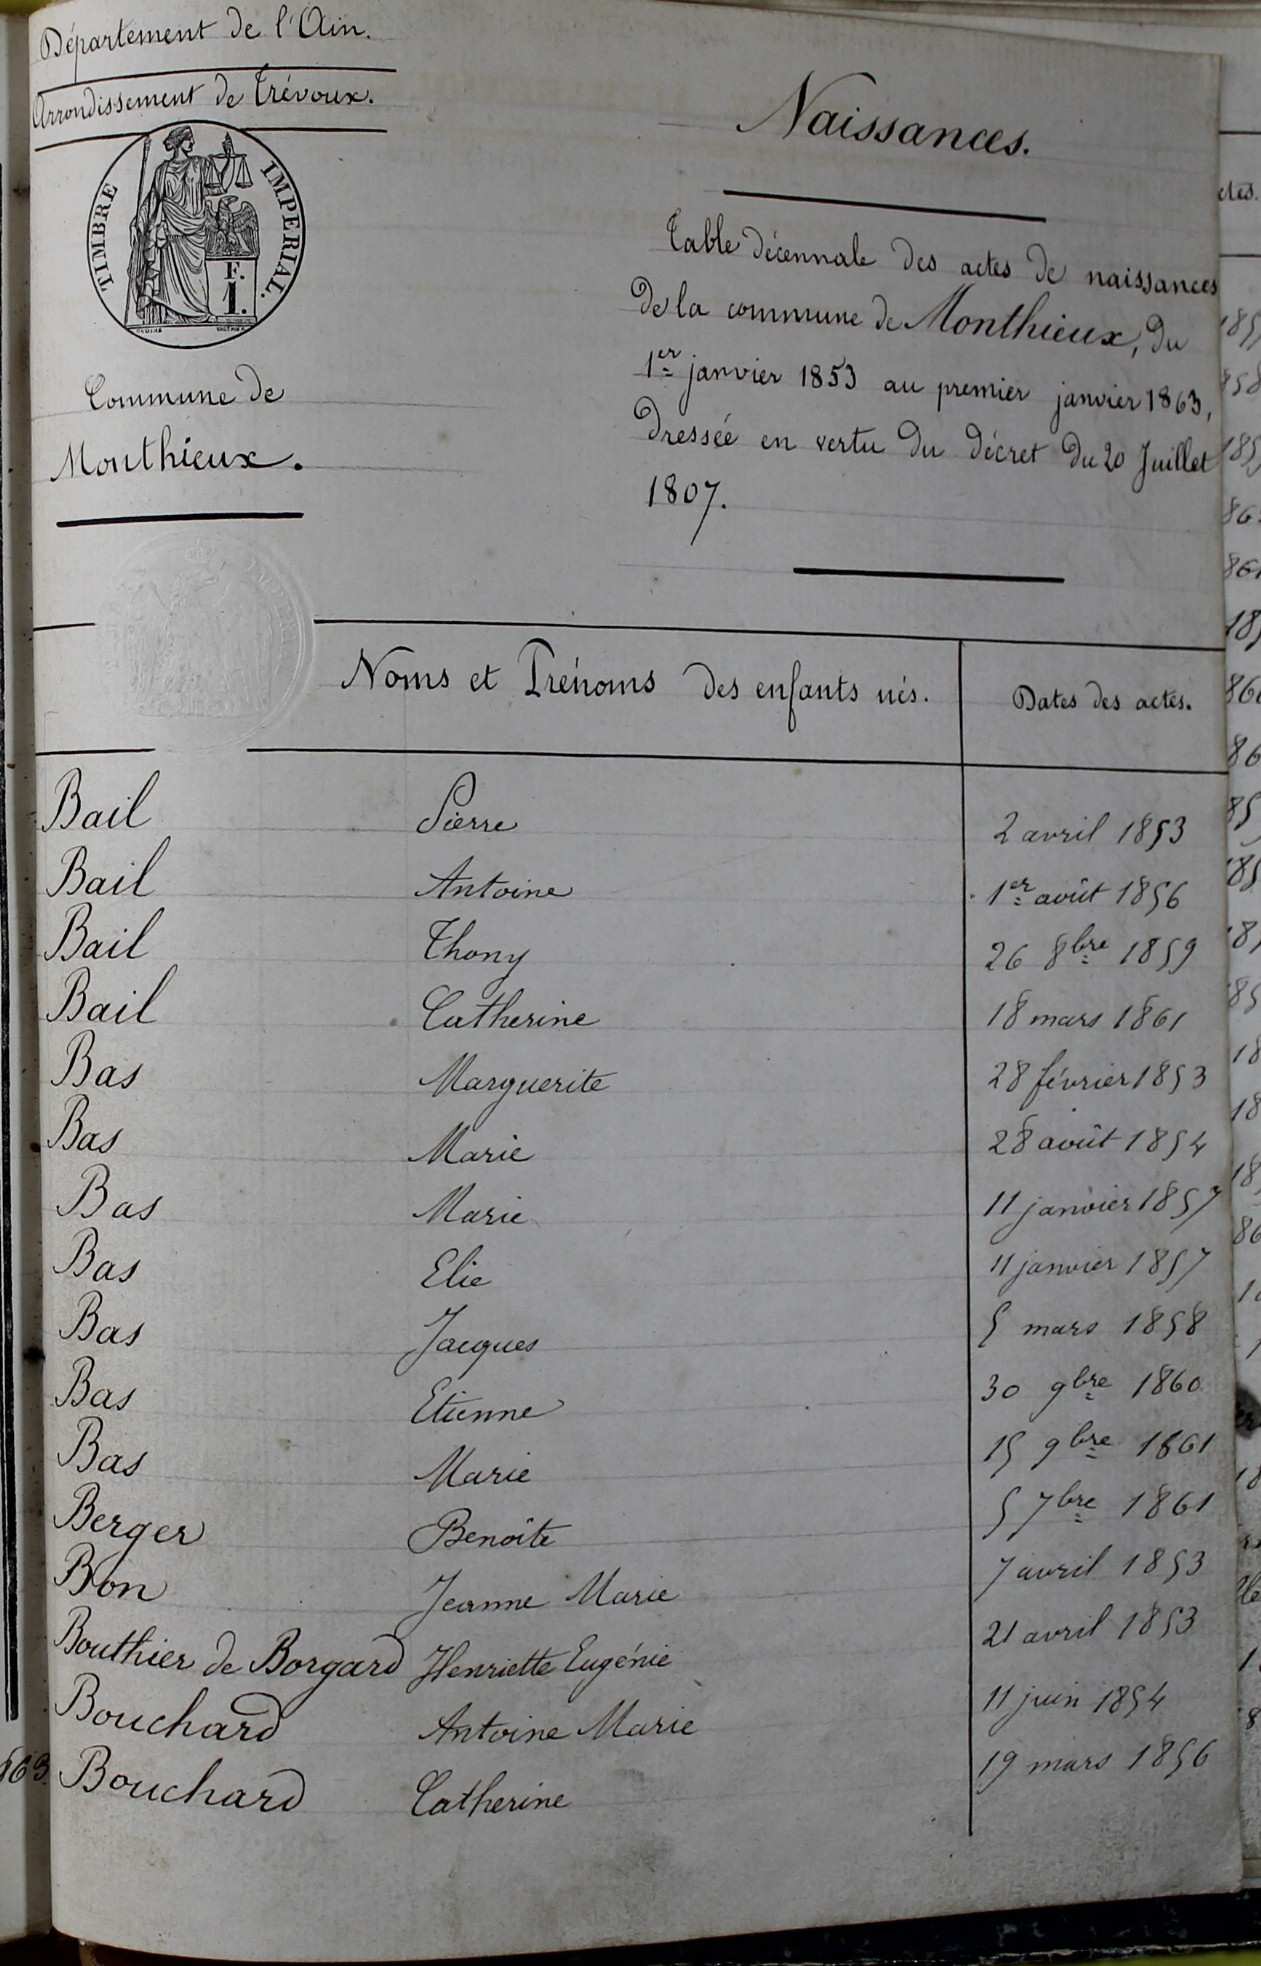 Département de l'Ain.
Arrondissement de Trévoux.
TIMBRE IMPERIAL.
F.
1.
Commune de
Monthieux.
Naissances.
Table décennale des actes de naissances
de la commune de Monthieux, du
1er janvier 1853 au premier janvier 1863,
dressée en vertu du décret du 20 Juillet
1807.
Noms et Prénoms des enfants nés. Dates des actes.
Bail Pierre 2 avril 1853
Bail Antoine 1er août 1856
Bail Thony 26 8bre 1859
Bail Catherine 18 mars 1861
Bas Marguerite 28 février 1853
Bas Marie 28 août 1854
Bas Marie 11 janvier 1857
Bas Elie 11 janvier 1857
Bas Jacques 5 mars 1858
Bas Etienne 30 9bre 1860
Bas Marie 15 9bre 1861
Berger Benoîte 5 7bre 1861
Bon Jeanne Marie 7 avril 1853
Bouthier de Borgard Henriette Eugénie 21 avril 1853
Bouchard Antoine Marie 11 juin 1854
Bouchard Catherine 19 mars 1856